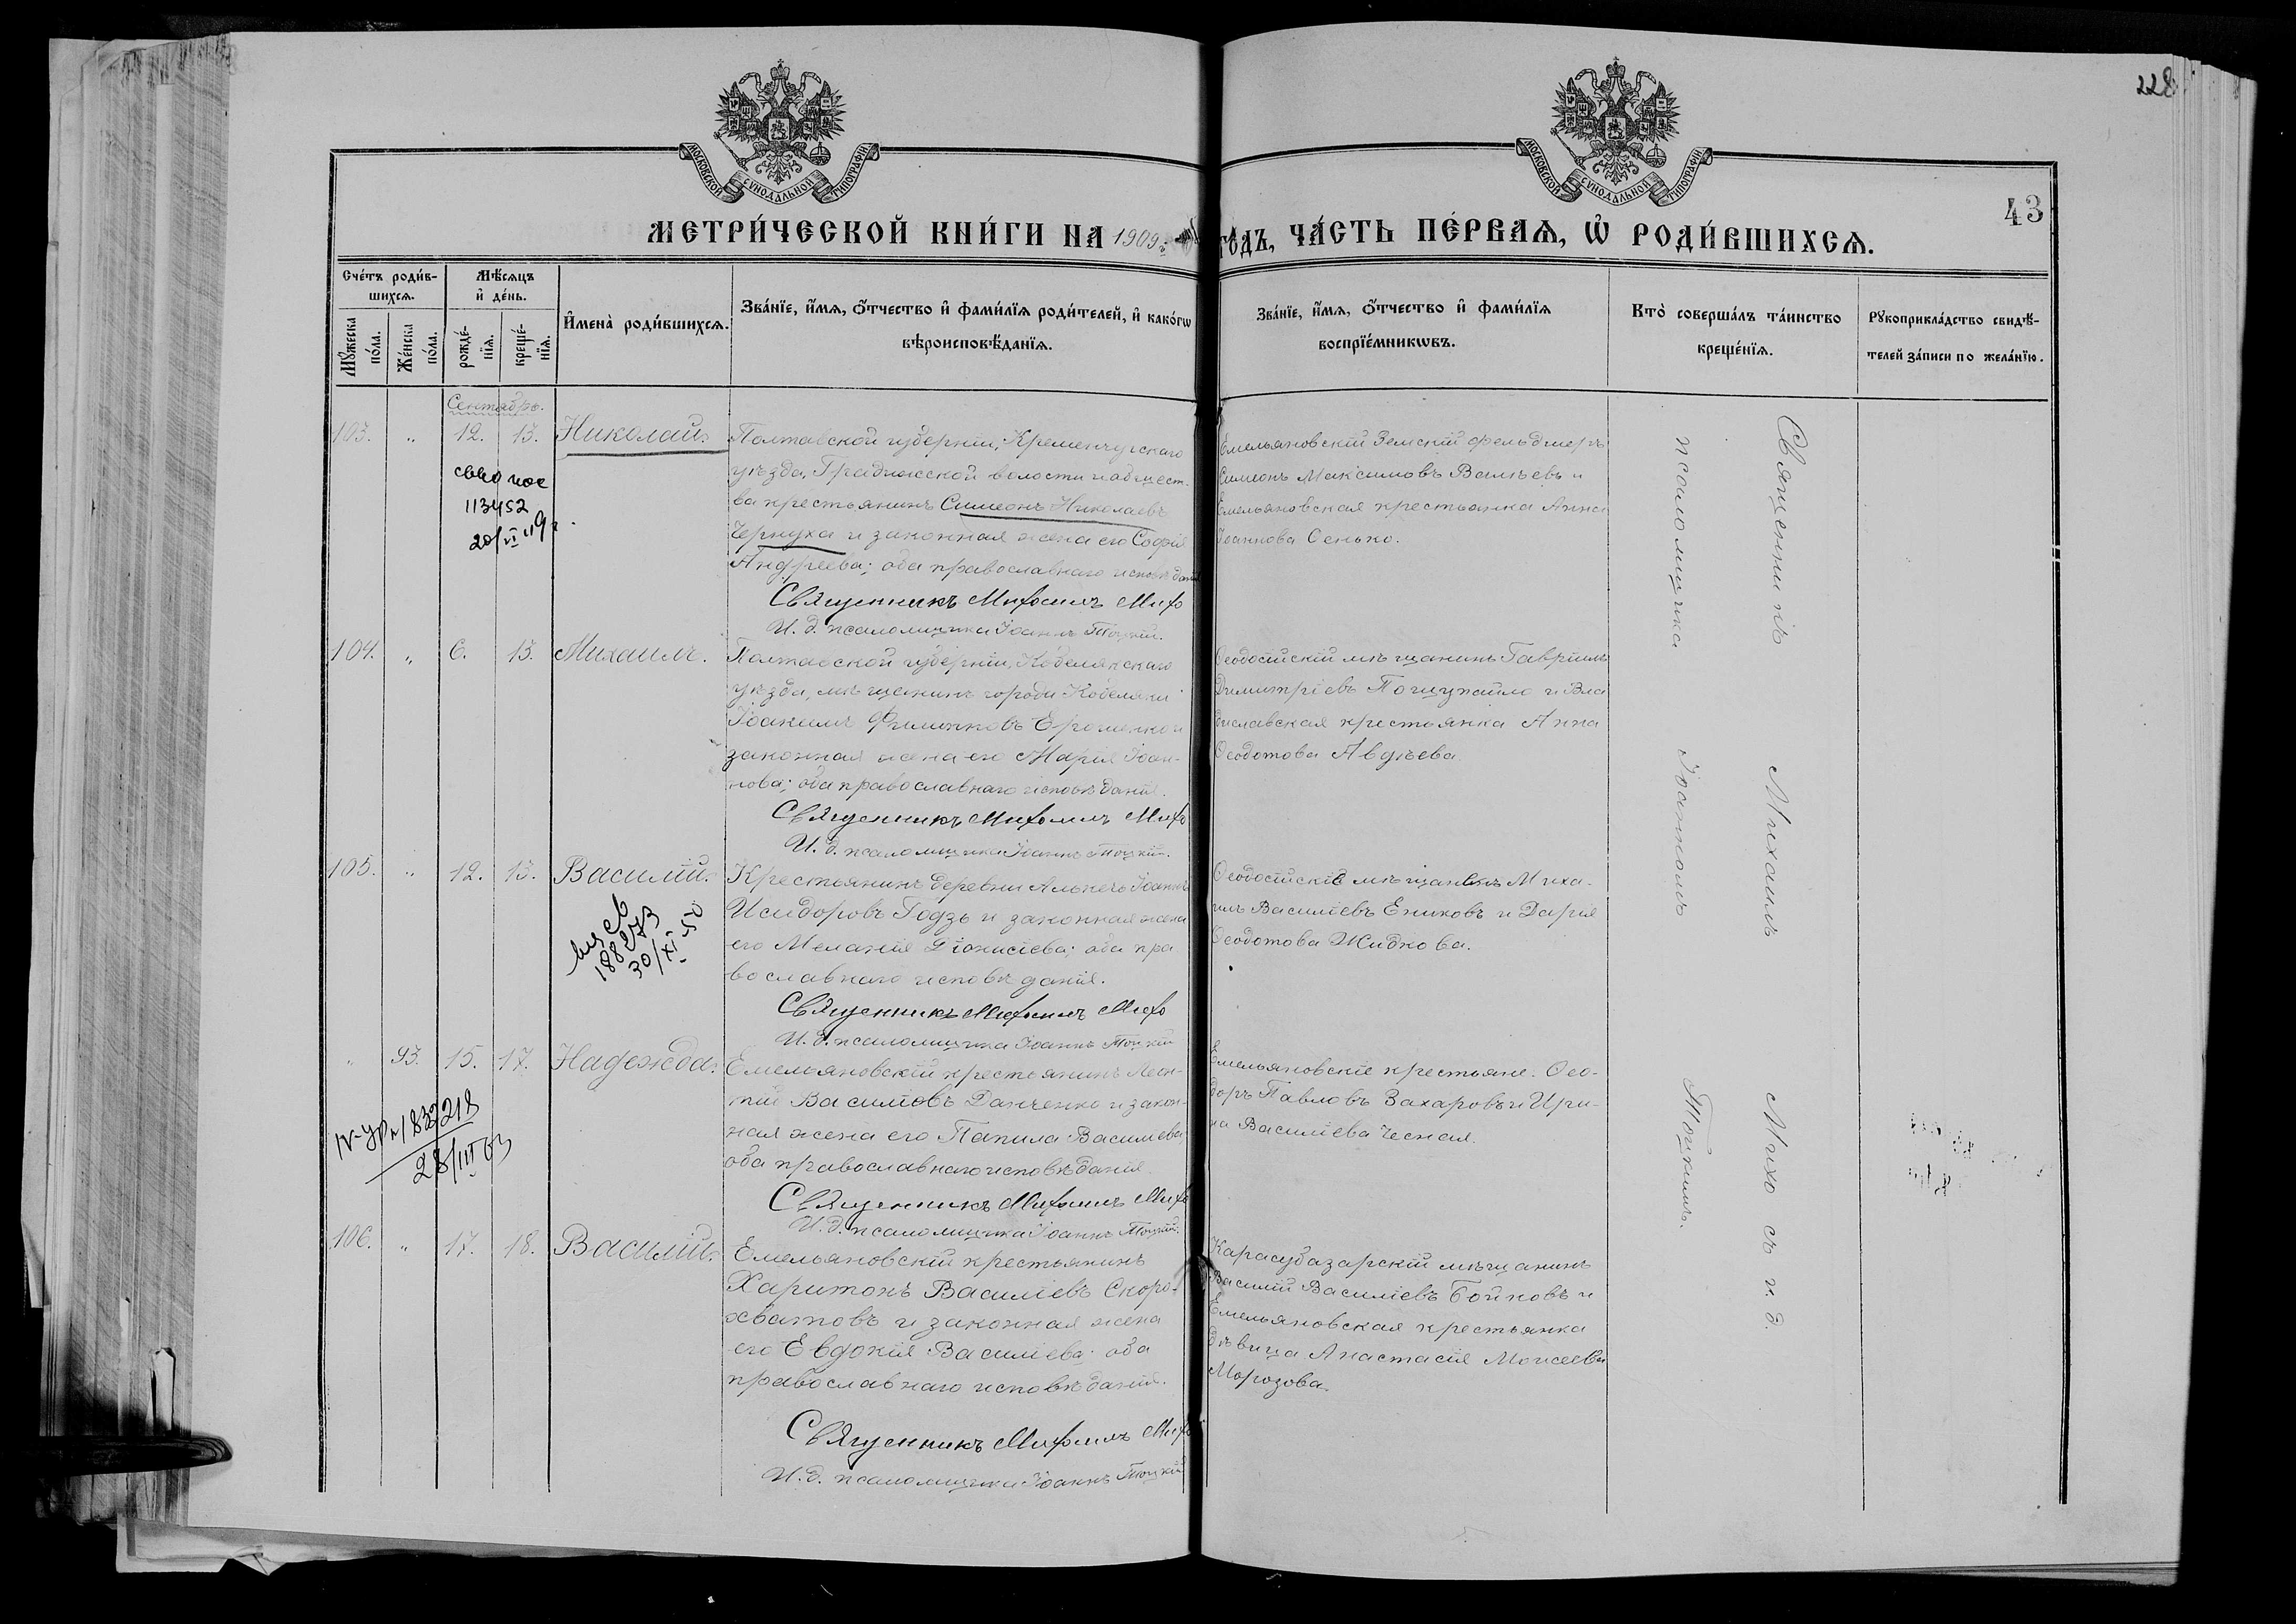 228
МОСКОВСКОЙ СѴНОДАЛЬНОЙ ТИПОГРАФІИ
МОСКОВСКОЙ СѴНОДАЛЬНОЙ ТИПОГРАФІИ
43
МЕТРИ́ЧЕСКОЙ КНИ́ГИ НА 1909 го́дъ, ЧА́СТЬ ПЕ́РВАѦ, Ѡ҆ РОДИ́ВШИХСѦ.
Сче́тъ роди́в-
шихсѧ.
Мꙋ́жеска
по́ла.
Же́нска
по́ла.
Мѣ́сѧцъ
и҆ де́нь.
рожде́-
нїѧ.
креще́-
нїѧ.
И҆мена̀ роди́вшихсѧ.
Зва́нїе, и҆́мѧ, ѻ҆́тчество и҆ фами́лїѧ роди́телей, и҆ како́гѡ
вѣроисповѣ́данїѧ.
Зва́нїе, и҆́мѧ, ѻ҆́тчество и҆ фами́лїѧ
воспрїе́мникѡвъ.
Кто̀ соверша́лъ та́инство
креще́нїѧ.
Рꙋкоприкла́дство свидѣ́-
телей за́писи по жела́нїю.
Сентябрь.
103. " 12. 13. Николай.
113452
20/VI 119г.
Полтавской губерніи, Кременчугскаго
уѣзда, Градижской волости и общест-
ва крестьянинъ Симеонъ Николаевъ
Чернуха и законная жена его Софія
Андреева; оба православнаго исповѣданія
Священникъ Михаилъ Михо
И. д. псаломщика Іоаннъ Тоцкій.
Емельяновскій Земскій фельдшеръ
Симеонъ Максимовъ Валѣевъ и
Емельяновская крестьянка Анна
Іоаннова Сенько.
104. " 6. 13. Михаилъ.
Полтавской губерніи, Кобелякскаго
уѣзда, мѣщанинъ города Кобеляки
Іоакимъ Филипповъ Ерошенко и
законная жена его Марія Іоан-
нова; оба православнаго исповѣданія.
Священникъ Михаилъ Михо
И. д. псаломщика Іоаннъ Тоцкій.
Ѳеодосійскій мѣщанинъ Гавріилъ
Димитріевъ Пощупайло и Вла
диславская крестьянка Анна
Ѳеодотова Авдѣева.
105. " 12. 13. Василій.
188273
30/XI-50
Крестьянинъ деревни Алькечъ Іоаннъ
Исидоровъ Годзь и законная жена
его Меланія Діонисіева; оба пра
вославнаго исповѣданія.
Священникъ Михаилъ Михо
И. д. псаломщика Іоаннъ Тоцкій
Ѳеодосійскіе мѣщане Миха-
илъ Василіевъ Ениковъ и Дарія
Ѳеодотова Жидкова.
" 93. 15. 17. Надежда.
28/III 63
Емельяновскій крестьянинъ Леон-
тій Василіевъ Данченко и закон-
ная жена его Василіева
оба православнаго исповѣданія.
Священникъ Михаилъ Михо
И. д. псаломщика Іоаннъ Тоцкій.
Емельяновскіе крестьяне: Ѳео-
доръ Павловъ Захаровъ и Ири-
на Василіева Чесная.
106. " 17. 18. Василій.
Емельяновскій крестьянинъ
Харитонъ Василіевъ Скоро-
хватовъ и законная жена
его Евдокія Василіева; оба
православнаго исповѣданія.
Священникъ Михаилъ Михо
И. д. псаломщика Іоаннъ Тоцкій
Карасубазарскій мѣщанинъ
Василій Василіевъ Бойковъ и
Емельяновская крестьянка
дѣвица Анастасія Моисеева
Морозова.
Священникъ Михаилъ Михо съ и. д.
псаломщика Іоанномъ Тоцкимъ.